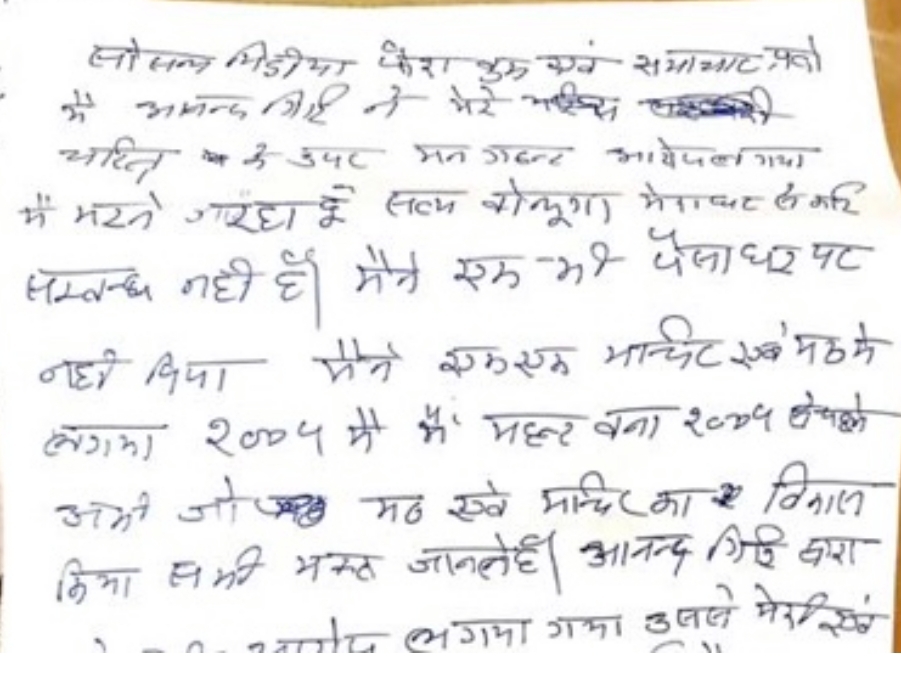 सोसल मिडीया फेश बुक एवं समाचार पत्रो
मे आनन्द गिरि ने मेरे
चरित्र के उपर मन गढन्त आरोप लगाया
मै मरने जा रहा हूँ सत्य बोलूंगा मेरा घर से कोई
सम्बन्ध नही है। मैने एक भी पैसा घर पर
नही दिया मैने एक एक मन्दिर एवं मठ मे
लगाया २००४ मे मै महन्त बना २००४ से पहले
अभी जो मठ एवं मन्दिर का विकास
किया सभी भक्त जानते है। आनन्द गिरि द्वारा
आरोप लगाया गया उससे मेरी एवं